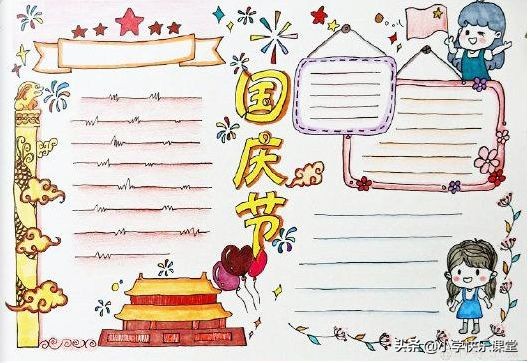 国庆节
头条@小学快乐课堂